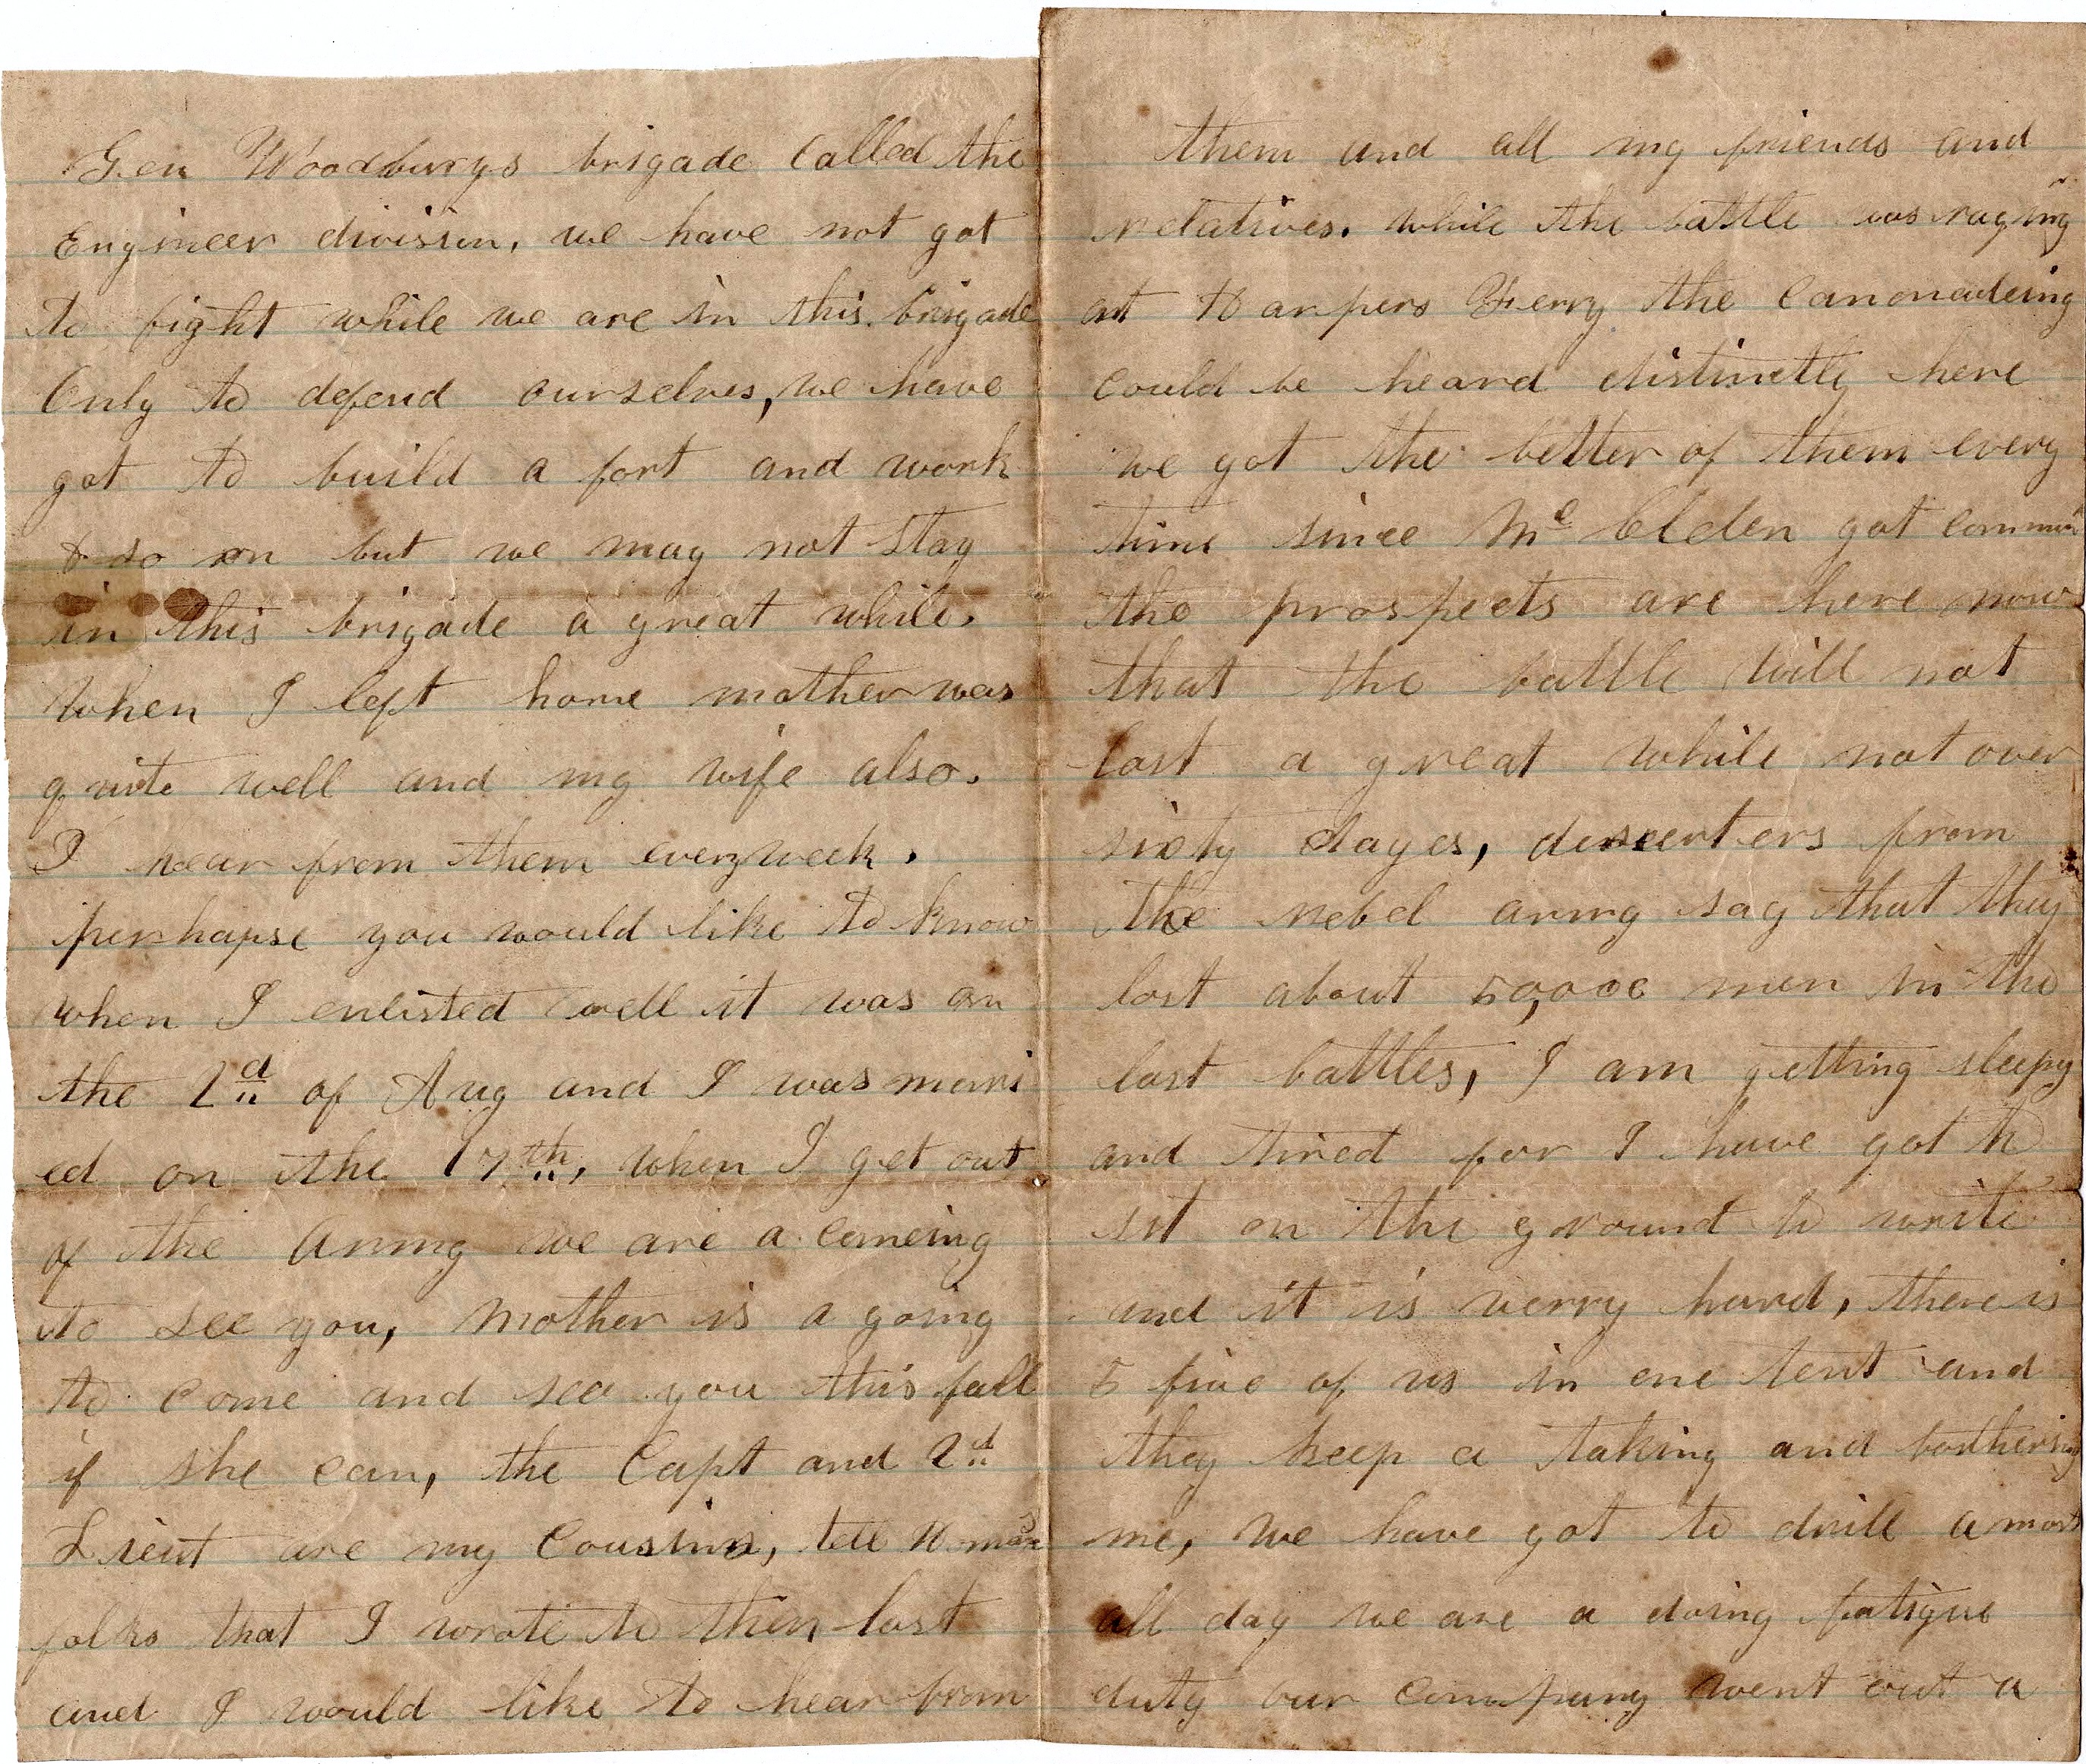 Gen Woodburys brigade called the
Engineer divissin, we have not got
to fight while we are in this brigade
Only to defend ourselves, we have
got to build a fort and work
& so on but we may not stay
in this brigade a great while.
When I left home mother was
quite well and my wife also.
I hear from them every week.
perhapse you would like to know
when I enlisted well it was on
the 2d of Aug and I was mari
ed on the 17th, when I get out
of the Army we are a comeing
to see you, Mother is a going
to come and see you this fall
if she can, the Capt and 2d
Lieut are my Cousins, tell
folks that I wrote to them last
and I would like to hear from
them and all my friends and
relatives. While the battle was raging
at Harpers Ferry the canonadeing
could be heard distinctly here
we got the better of them every
time since Mc Clelen got
the prospects are here now
that the battle will not
last a great while not over
sixty dayes, deseerters from
the rebel army say that they
lost about 50,000 men in the
last battles, I am getting sleepy
and tired for I have got to
sit on the ground to write
and it is verry hard, there is
5 five of us in one tent and
they keep a taking and bothering
me, we have got to drill amost
all day we are a doing fatigue
duty our company went out a